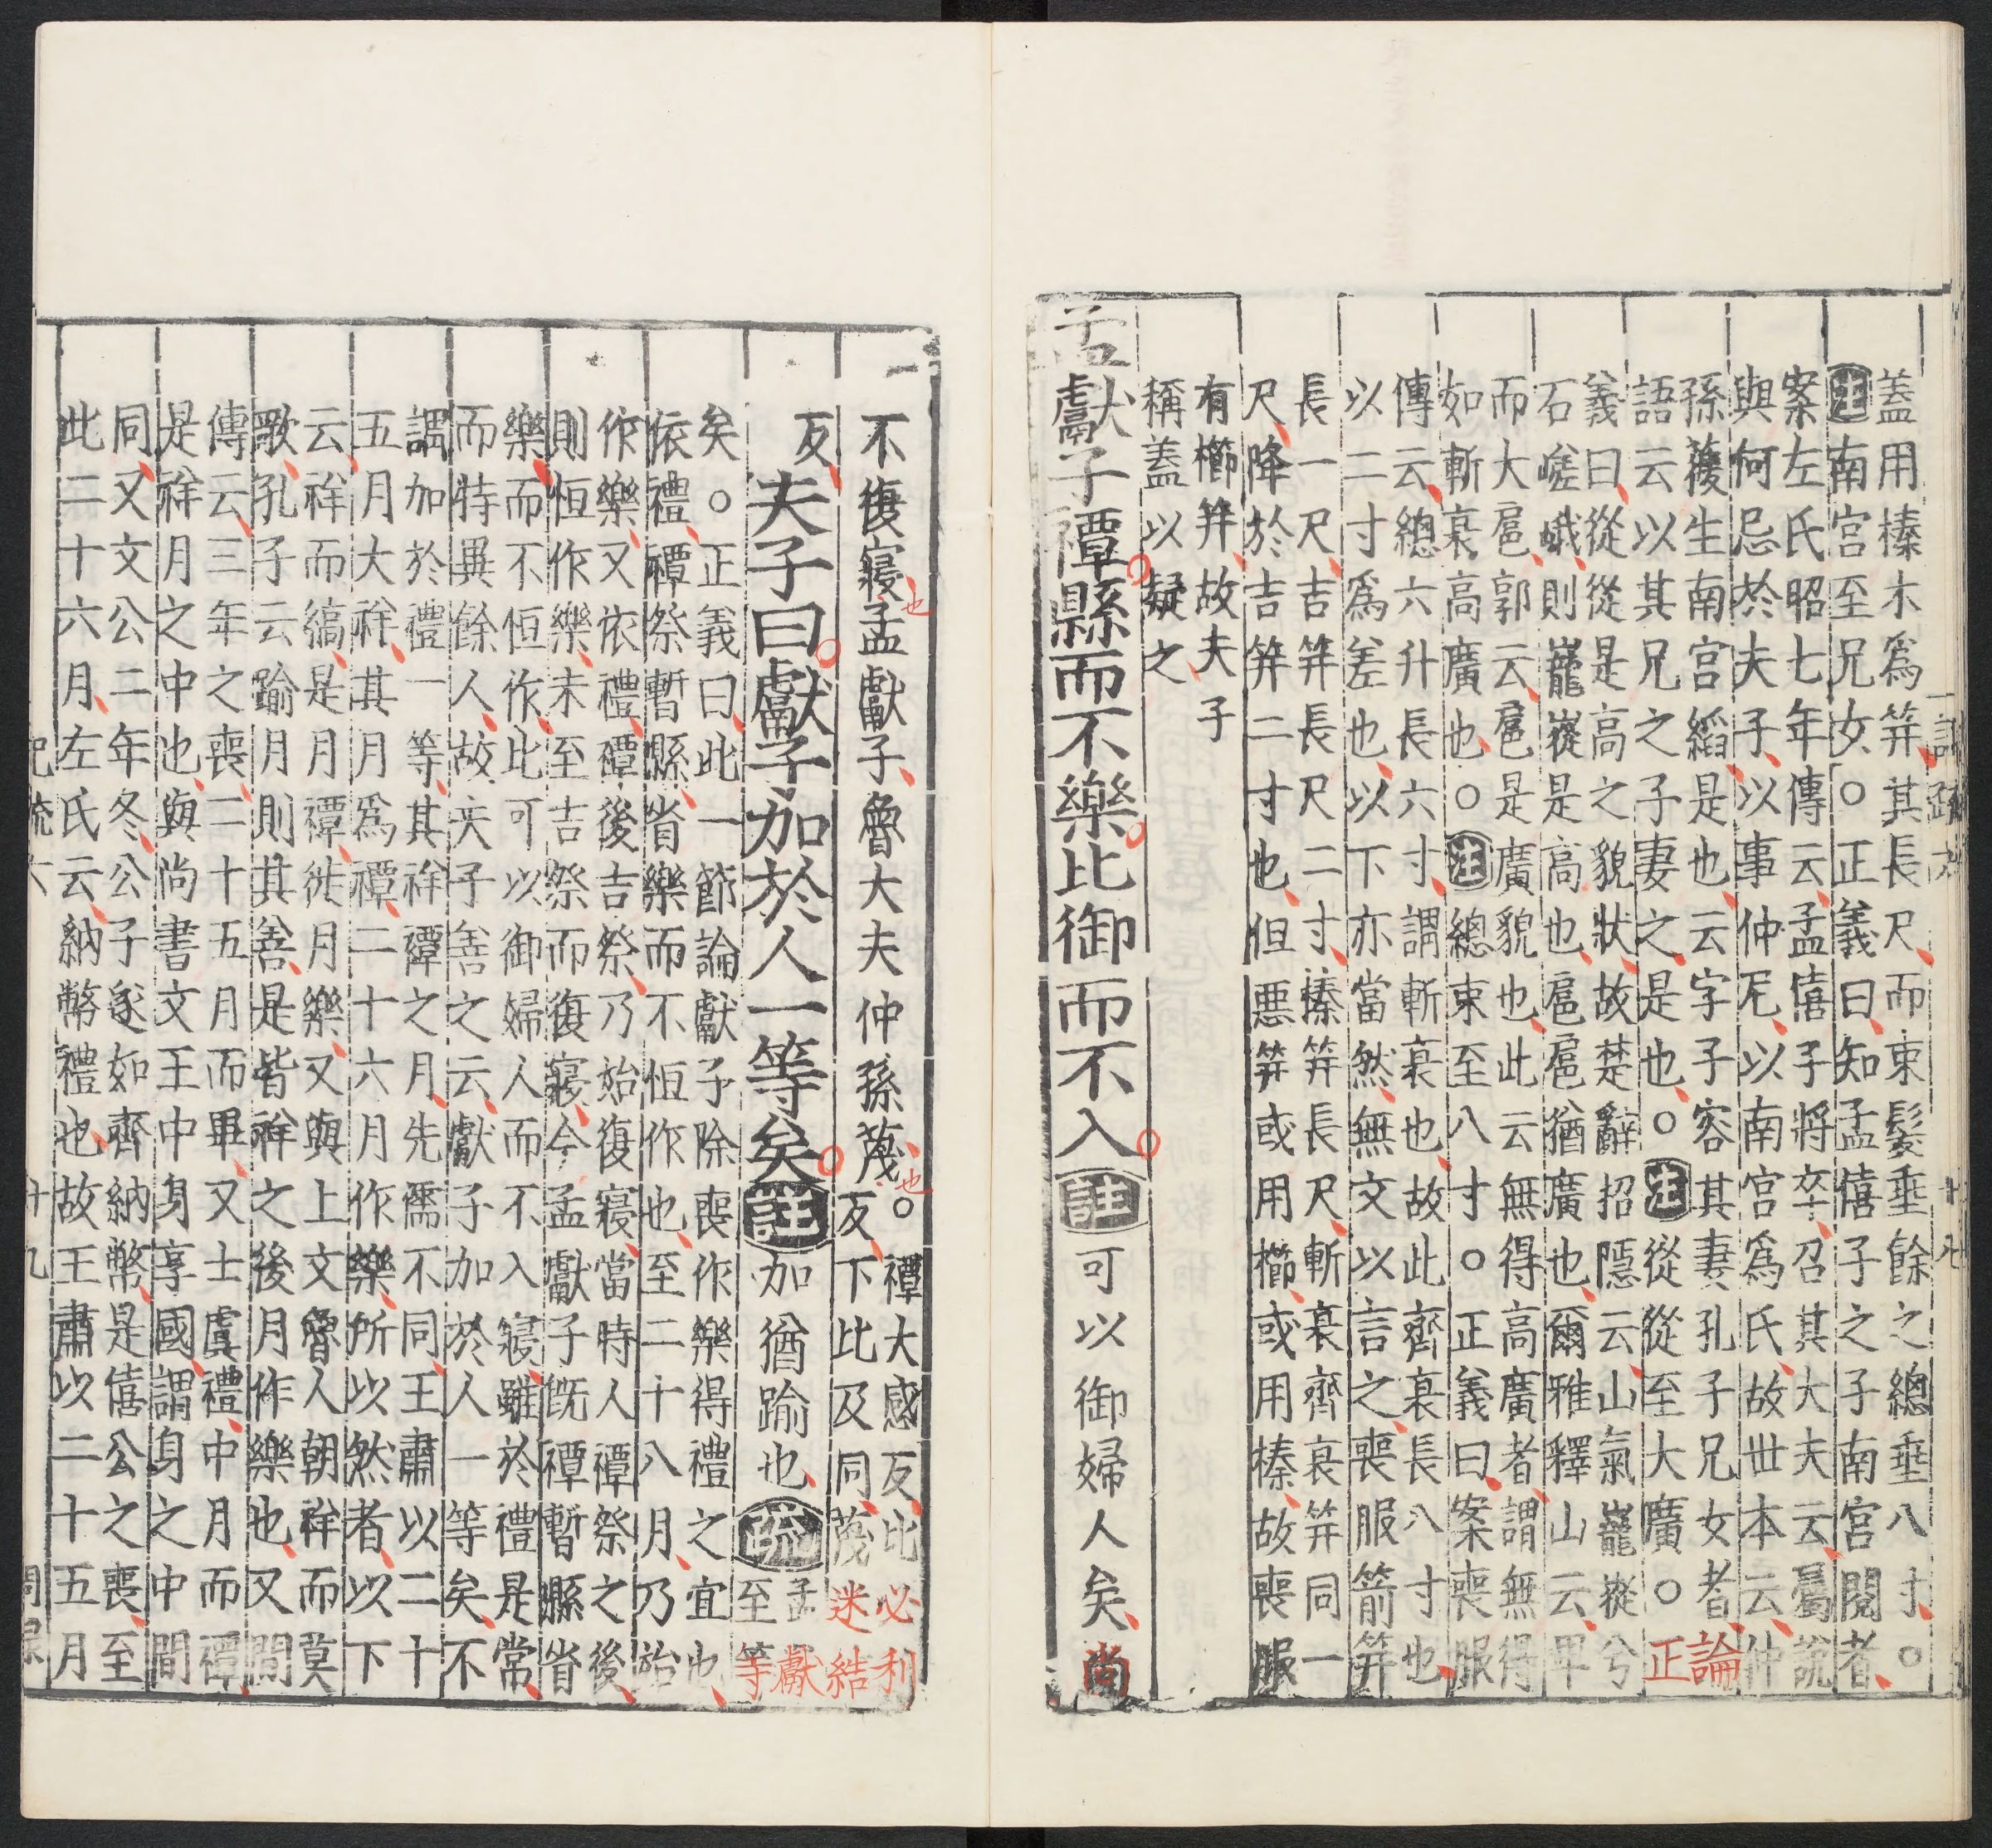 蓋用榛木爲笄其長尺而束髮垂餘之總垂八寸○
注南宫至兄女○正義曰知孟僖子之子南宫閱者
案左氏昭七年傳云孟僖子將卒召其大夫云屬說
與何忌於夫子以事仲尼以南宫爲氏故世本云仲
孫蒦生南宫縚是也云字子容其妻孔子兄女者論
語云以其兄之子妻之是也○注從從至大廣○正
義曰從從是高之貌狀故楚辭招隱云山氣巃嵷兮
石嵯峨則巃嵷是高也扈扈猶廣也爾雅釋山云卑
而大扈郭云扈是廣貌也此云無得高廣者謂無得
如斬衰高廣也○注總束至八寸○正義曰案喪服
傳云總六升長六寸謂斬衰也故此齊衰長八寸也
以二寸爲差也以下亦當然無文以言之喪服箭笄
長一尺吉笄長尺二寸榛笄長尺斬衰齊衰笄同一
尺降於吉笄二寸也但惡笄或用櫛或用榛故喪服
有櫛笄故夫子
稱蓋以疑之
孟獻子禫縣而不樂比御而不入註可以御婦人矣尚
不復寢孟獻子魯大夫仲孫蔑也○禫大感反比必利
反下比及同蔑迷結
反夫子曰獻子加於人一等矣註加猶踰也疏孟獻
至等
矣○正義曰此一節論獻子除喪作樂得禮之宜也
依禮禫祭暫縣省樂而不恒作也至二十八月乃始
作樂又依禮禫後吉祭乃始復寢當時人禫祭之後
則恒作樂未至吉祭而復寢今孟獻子既禫暫縣省
樂而不恒作此可以御婦人而不入寢雖於禮是常
而特異餘人故夫子善之云獻子加於人一等矣不
謂加於禮一等其祥禫之月先儒不同王肅以二十
五月大祥其月爲禫二十六月作樂所以然者以下
云祥而縞是月禫徙月樂又與上文魯人朝祥而莫
歌孔子云踰月則其善是皆祥之後月作樂也又間
傳云三年之喪二十五月而畢又士虞禮中月而禫
是祥月之中也與尚書文王中身享國謂身之中間
同又文公二年冬公子遂如齊納幣是僖公之喪至
此二十六月左氏云納幣禮也故王肅以二十五月